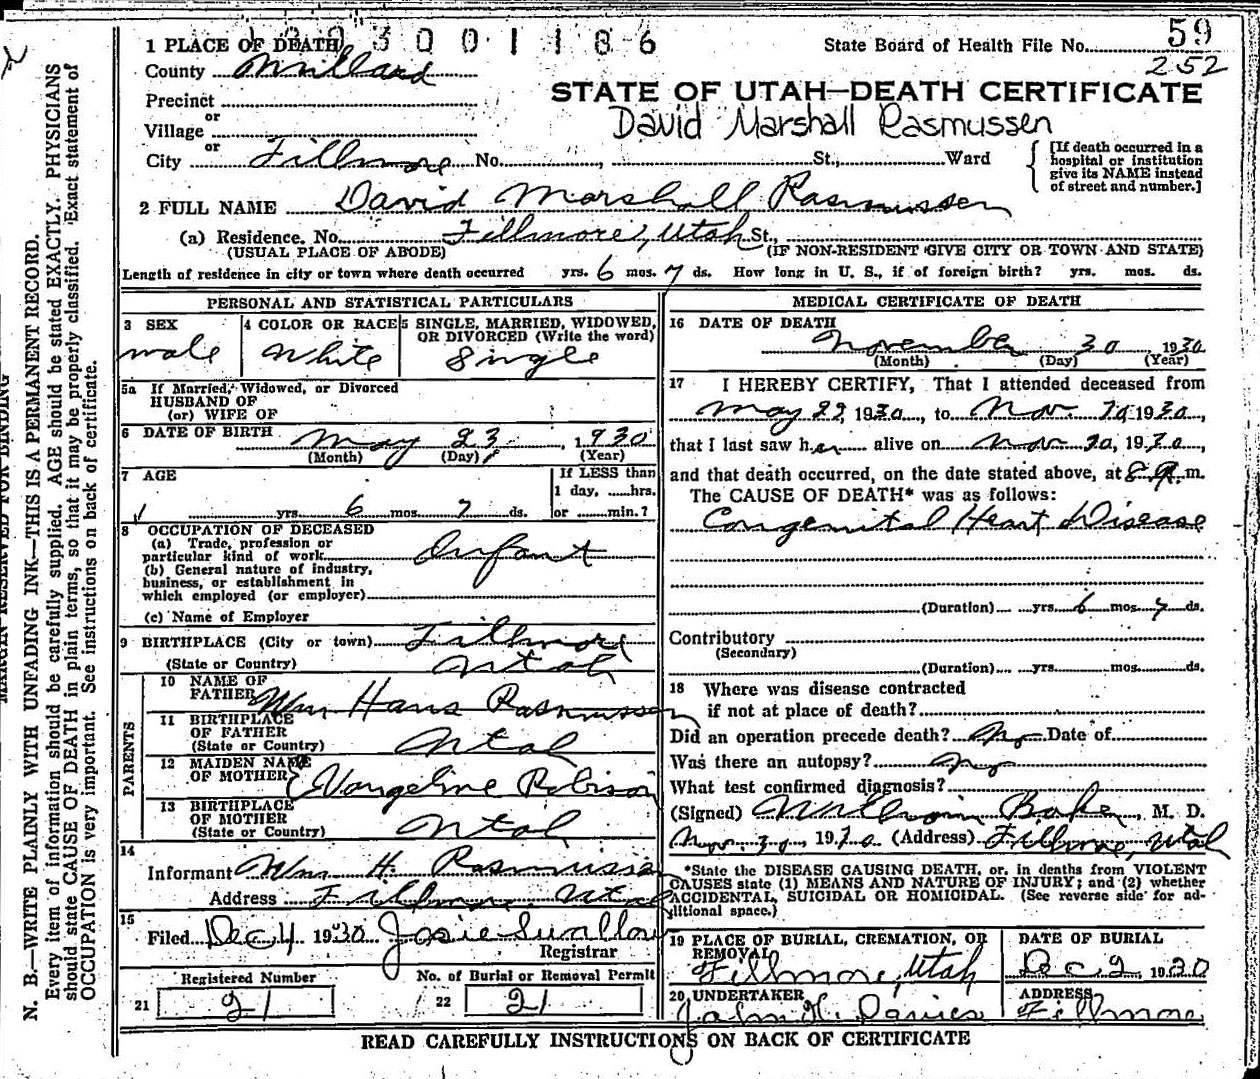 1 PLACE OF DEATH 1 9 3 0 0 1 1 8 6
State Board of Health File No. 59
252
County Millard
Precinct
or
Village
or
City Fillmore No. , St., Ward
STATE OF UTAH—DEATH CERTIFICATE
David Marshall Rasmussen
[If death occurred in a
hospital or institution
give its NAME instead
of street and number.]
2 FULL NAME David Marshall Rasmussen
(a) Residence. No. Fillmore, Utah St.,
(USUAL PLACE OF ABODE) (IF NON-RESIDENT GIVE CITY OR TOWN AND STATE)
Length of residence in city or town where death occurred yrs. 6 mos. 7 ds. How long in U. S., if of foreign birth? yrs. mos. ds.
PERSONAL AND STATISTICAL PARTICULARS
3 SEX
male
4 COLOR OR RACE
White
5 SINGLE, MARRIED, WIDOWED,
OR DIVORCED (Write the word)
Single
5a If Married, Widowed, or Divorced
HUSBAND OF
(or) WIFE OF
6 DATE OF BIRTH May 23, 1930
(Month) (Day) (Year)
7 AGE
yrs. 6 mos. 7 ds.
If LESS than
1 day, ......hrs.
or ........min.?
8 OCCUPATION OF DECEASED
(a) Trade, profession or
particular kind of work Infant
(b) General nature of industry,
business, or establishment in
which employed (or employer)
(c) Name of Employer
9 BIRTHPLACE (City or town) Fillmore
(State or Country) Utah
PARENTS
10 NAME OF
FATHER Wm Hans Rasmussen
11 BIRTHPLACE
OF FATHER
(State or Country) Utah
12 MAIDEN NAME
OF MOTHER Evangeline Robison
13 BIRTHPLACE
OF MOTHER
(State or Country) Utah
14
Informant Wm H. Rasmussen
Address Fillmore, Utah
15
Filed Dec 4 1930 Josie Swallow
Registrar
Registered Number
21 21
No. of Burial or Removal Permit
22 21
MEDICAL CERTIFICATE OF DEATH
16 DATE OF DEATH
November 30 1930
(Month) (Day) (Year)
17 I HEREBY CERTIFY, That I attended deceased from
May 23, 1930, to Nov. 30, 1930,
that I last saw her alive on Nov. 30, 1930
and that death occurred, on the date stated above, at 8 A. m.
The CAUSE OF DEATH* was as follows:
Congenital Heart Disease
(Duration) yrs. 6 mos. 7 ds.
Contributory
(Secondary)
(Duration) yrs. mos. ds.
18 Where was disease contracted
if not at place of death?
Did an operation precede death? No Date of
Was there an autopsy? No
What test confirmed diagnosis?
(Signed) , M. D.
Nov. 30, 1930 (Address) Fillmore, Utah
*State the DISEASE CAUSING DEATH, or, in deaths from VIOLENT
CAUSES state (1) MEANS AND NATURE OF INJURY; and (2) whether
ACCIDENTAL, SUICIDAL OR HOMICIDAL. (See reverse side for ad-
ditional space.)
19 PLACE OF BURIAL, CREMATION, OR
REMOVAL
Fillmore, Utah
DATE OF BURIAL
Dec. 2, 1930
20 UNDERTAKER
John H. Davies
ADDRESS
Fillmore
READ CAREFULLY INSTRUCTIONS ON BACK OF CERTIFICATE
MARGIN RESERVED FOR BINDING
N. B.—WRITE PLAINLY WITH UNFADING INK—THIS IS A PERMANENT RECORD.
Every item of information should be carefully supplied. AGE should be stated EXACTLY. PHYSICIANS
should state CAUSE OF DEATH in plain terms, so that it may be properly classified. Exact statement of
OCCUPATION is very important. See instructions on back of certificate.